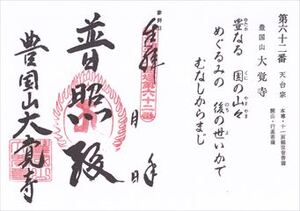 第六十二番 天台宗
豊国山 大覚寺
本尊・十一面観世音菩薩
開山・行基菩薩
豊なる 国の山々
めぐるみの 後の世いかで
むなしからまじ
奉拝
月 日
普照殿
豊国山大覚寺